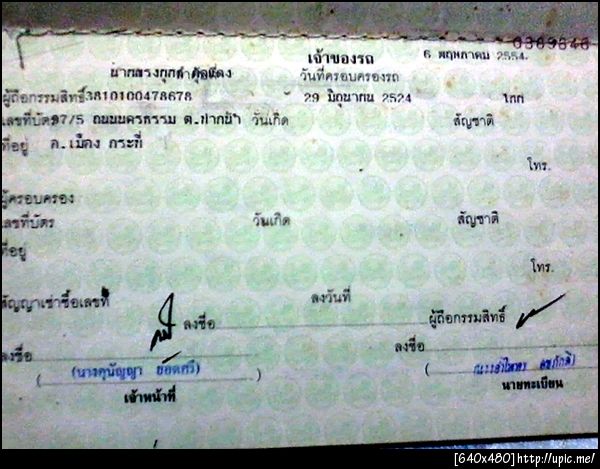 เจ้าของรถ
6 พฤษภาคม 2554.
วันที่ครอบครองรถ
ผู้ถือกรรมสิทธิ์3810100478678 29 มิถุนายน 2524 ไทย
เลขที่บัตร97/5 ถนน ต.ปากน้ำ วันเกิด สัญชาติ
ที่อยู่ อ.เมือง กระบี่
โทร.
ผู้ครอบครอง
เลขที่บัตร วันเกิด สัญชาติ
ที่อยู่
โทร.
สัญญาเช่าซื้อเลขที่ ลงวันที่
ลงชื่อ ผู้ถือกรรมสิทธิ์
ลงชื่อ ลงชื่อ
(นาง ยอดศรี)
เจ้าหน้าที่ นายทะเบียน
[640x480]http://upic.me/